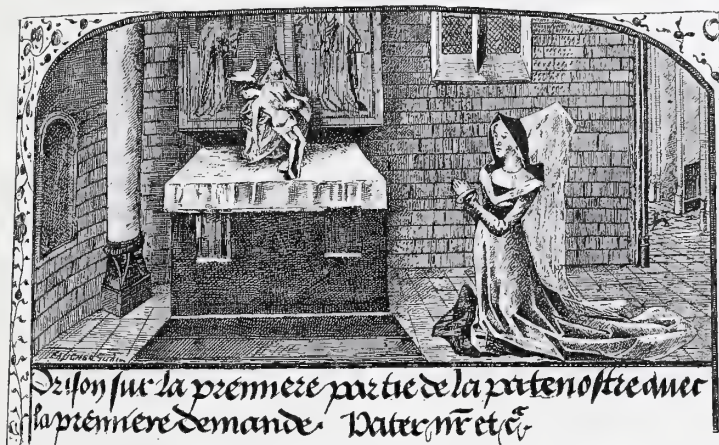 FAUCHER-GUDIN
Orison sur la premiere partie de la patenostre auec
la premiere demande. Pater nr̄ et c̄